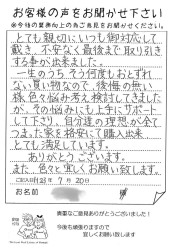 お客様の声をお聞かせ下さい
とても親切にいつも御対応して
戴き、不安なく最後まで取り引き
する事が出来ました。
一生のうち、そう何度もおとずれ
ない買い物なので、後悔の無い
様、色々悩み考え、検討してきました
が、その悩みにも上手にサポート
して下さり、自分達の理想に合った
つ
お家を格安にて購入出来
とても満足しています。
ありがとうございます。
また、色々と宜しくお願い致します。
ご記入日 23年 9月 20日
お名前
貴重なご意見ありがとうございました！
今後も頑張りますので
宜しくお願い致します